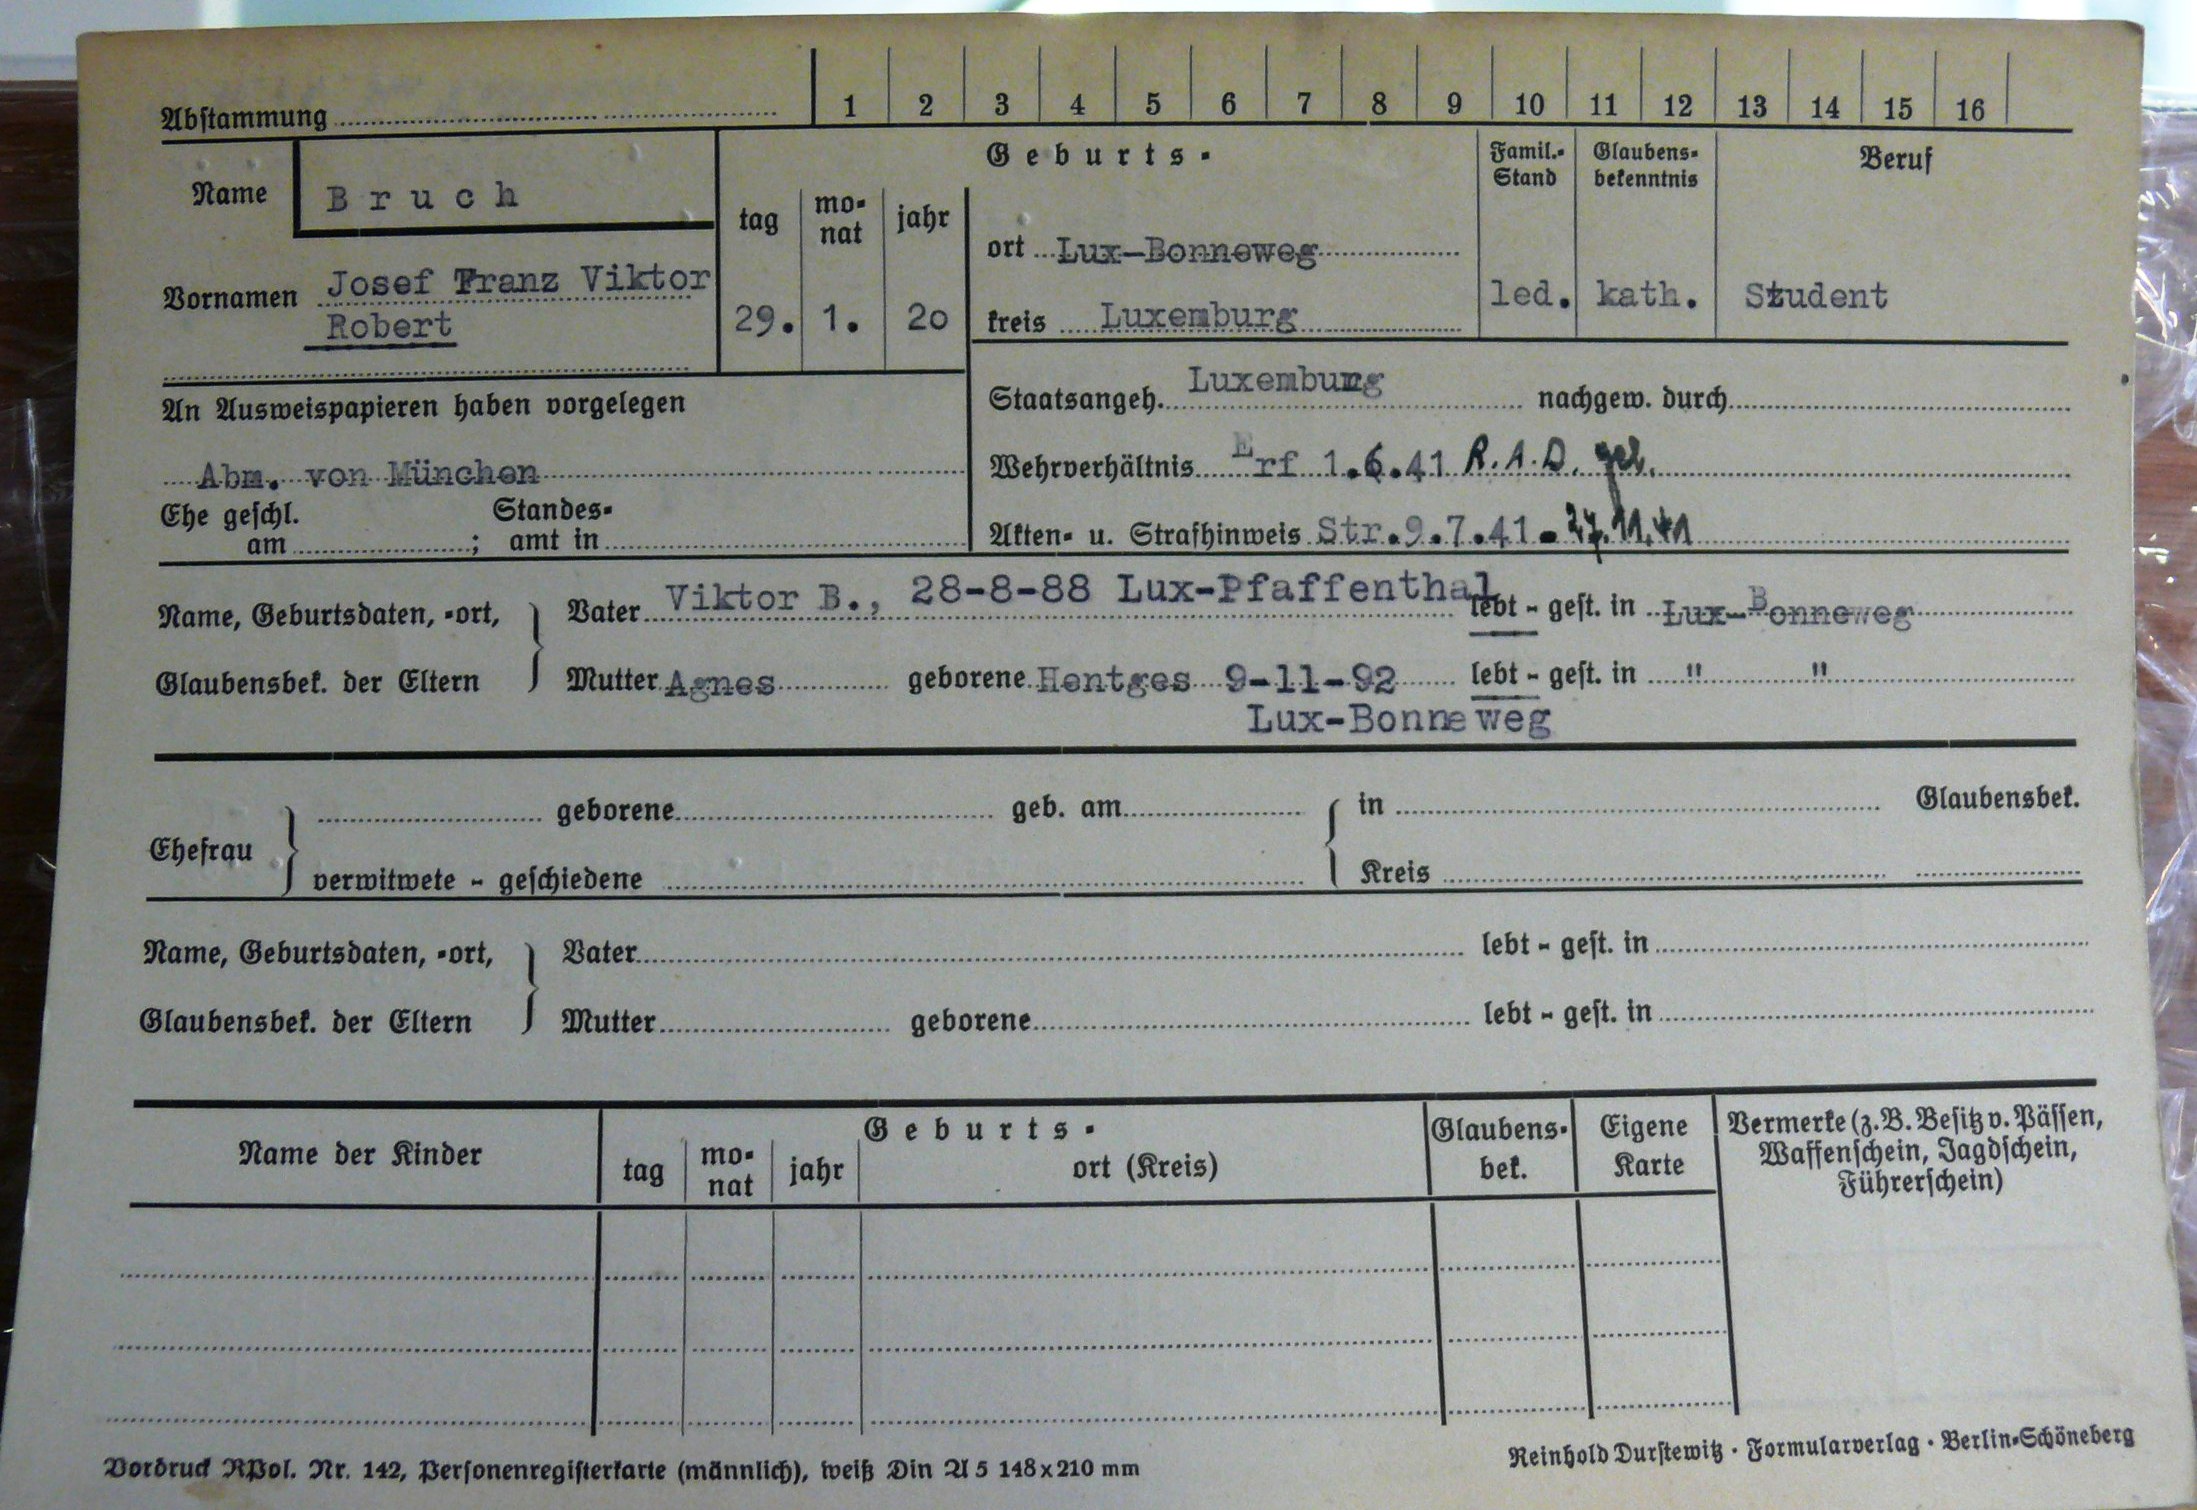 Abstammung
1 2 3 4 5 6 7 8 9 10 11 12 13 14 15 16
Name Bruch
Vornamen Josef Franz Viktor
Robert
Geburts-
tag mo-nat jahr
29. 1. 20
ort Lux-Bonneweg
kreis Luxemburg
Famil.-
Stand
led.
Glaubens-
bekenntnis
kath.
Beruf
Student
An Ausweispapieren haben vorgelegen
Abm. von München
Ehe geschl.
am ; Standes-
amt in
Staatsangeh. Luxemburg nachgew. durch
Wehrverhältnis Erf 1.6.41 R.A.D.
Akten- u. Strafhinweis Str.9.7.41-27.11.41
Name, Geburtsdaten, -ort, Vater Viktor B., 28-8-88 Lux-Pfaffenthal lebt - gest. in Lux-Bonneweg
Glaubensbek. der Eltern Mutter Agnes geborene Hentges 9-11-92 lebt - gest. in " "
Lux-Bonneweg
Ehefrau geborene geb. am in Glaubensbek.
verwitwete - geschiedene Kreis
Name, Geburtsdaten, -ort, Vater lebt - gest. in
Glaubensbek. der Eltern Mutter geborene lebt - gest. in
Name der Kinder
Geburts-
tag mo-nat jahr ort (Kreis)
Glaubens-
bek.
Eigene
Karte
Vermerke (z.B. Besitz v. Pässen,
Waffenschein, Jagdschein,
Führerschein)
Vordruck RPol. Nr. 142, Personenregisterkarte (männlich), weiß Din A 5 148x210 mm
Reinhold Durstewitz · Formularverlag · Berlin-Schöneberg